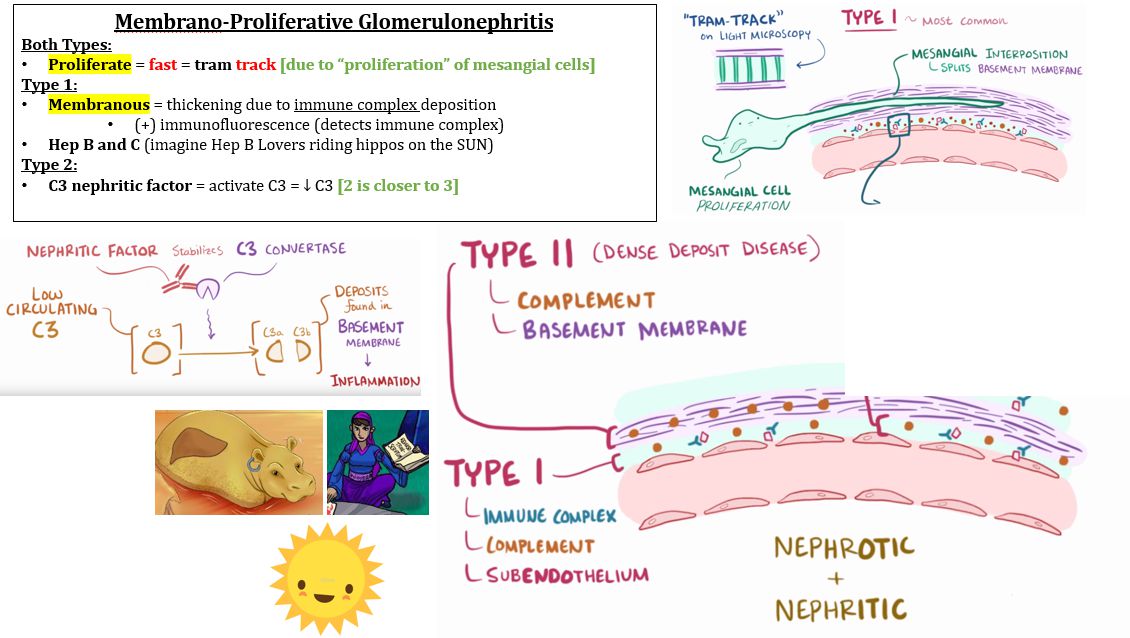 Membrano-Proliferative Glomerulonephritis
Both Types:
• Proliferate = fast = tram track [due to “proliferation” of mesangial cells]
Type 1:
• Membranous = thickening due to immune complex deposition
• (+) immunofluorescence (detects immune complex)
• Hep B and C (imagine Hep B Lovers riding hippos on the SUN)
Type 2:
• C3 nephritic factor = activate C3 = ↓ C3 [2 is closer to 3]
"TRAM-TRACK"
on LIGHT MICROSCOPY
TYPE I ~ MOST COMMON
MESANGIAL INTERPOSITION
SPLITS BASEMENT MEMBRANE
MESANGIAL CELL
PROLIFERATION
NEPHRITIC FACTOR Stabilizes C3 CONVERTASE
LOW
CIRCULATING
C3
C3
C3a C3b
DEPOSITS
found in
BASEMENT
MEMBRANE
↓
INFLAMMATION
TYPE II (DENSE DEPOSIT DISEASE)
COMPLEMENT
BASEMENT MEMBRANE
TYPE I
IMMUNE COMPLEX
COMPLEMENT
SUBENDOTHELIUM
NEPHROTIC
+
NEPHRITIC